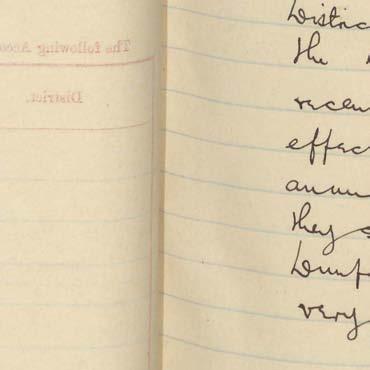 The following Acco
District.
Distric
the
recen
effec
annu
they
Dumf
very